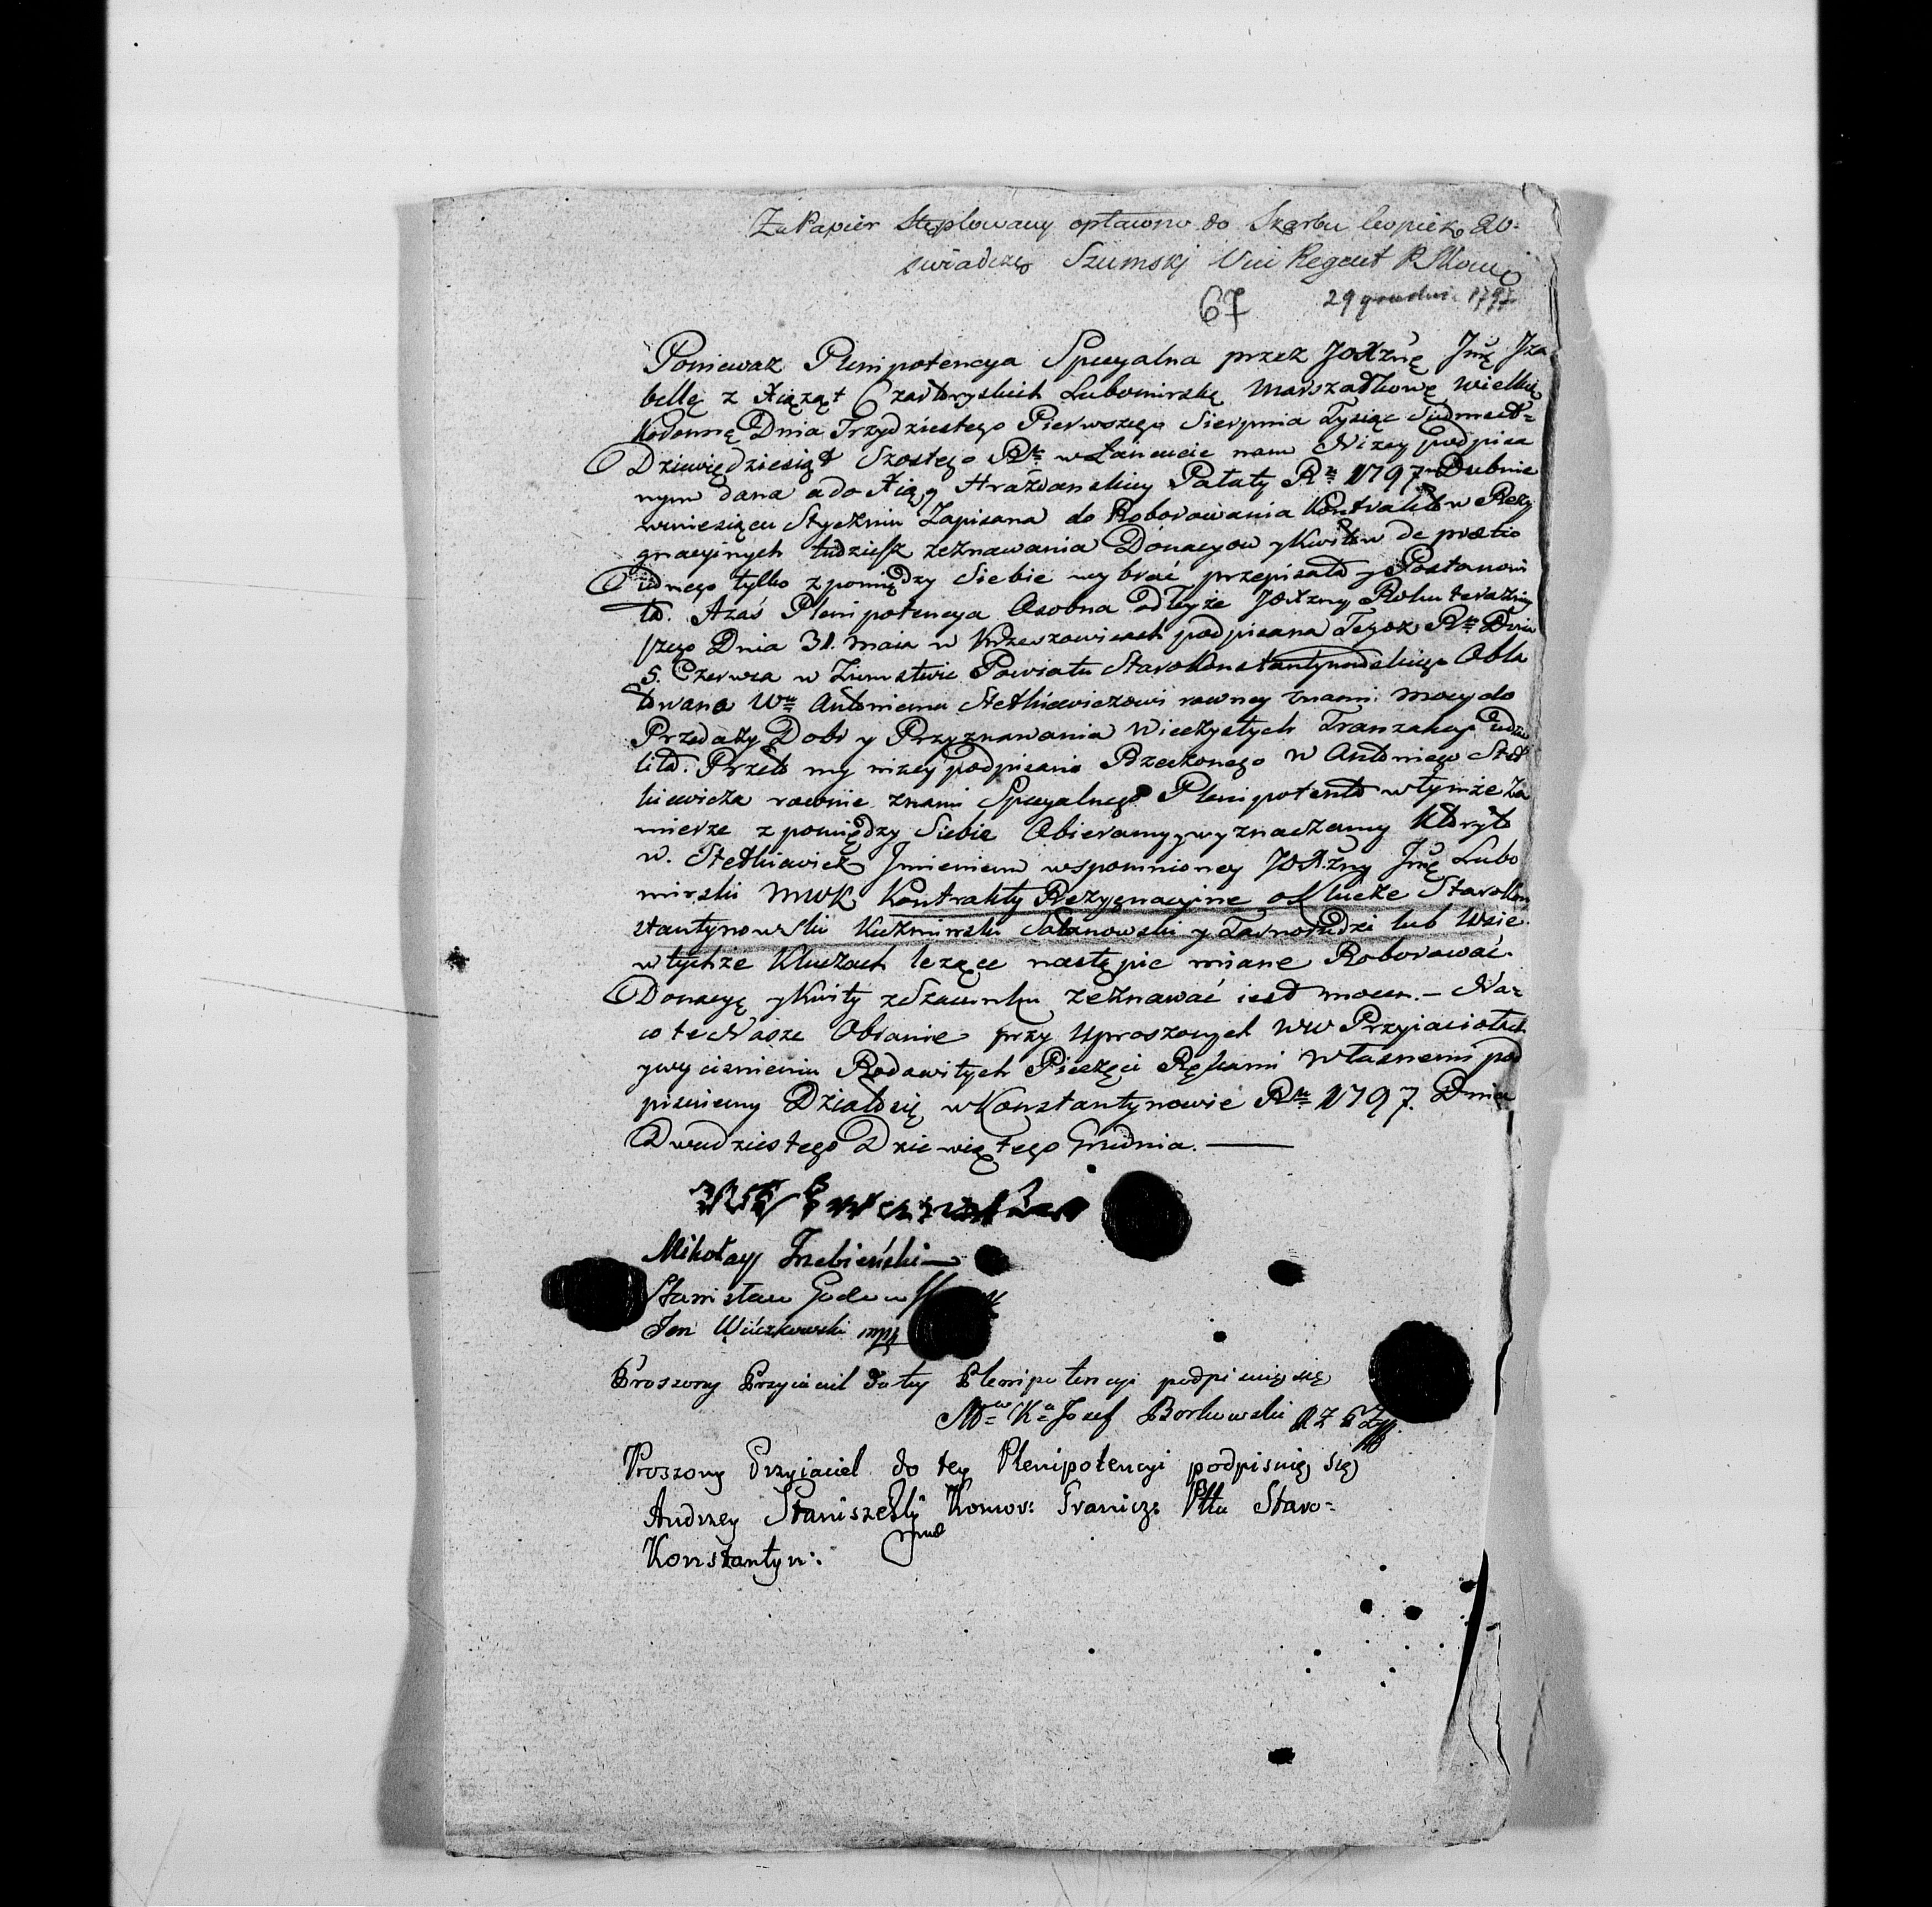 Za Papier Stęplowany opłacono do Skarbu kopiiek 20.
świadczę Szumski Vice Regent
67 29 grudnia 1797
Ponieważ Plenipotencya Specyalna przez JOXznę Jmę Iza
bellę z Xiążąt Czartoryskich Lubomirską Marszałkowę Wielką
Koronną Dnia Trzydziestego Pierwszego Sierpnia Tysiąc Siedmset-
Dziewiędziesiąt Szostego Rku w Łancucie nam Niżey podpisa
nym dana a do Xiąg Hrażdanskiey Pałaty Rku 1797 w Dubnie
w miesiącu Styczniu Zapisana do Roborowania Kontraktow Rezy
gnacyinych tudzież zeznawania Donacyow y Kwitow de pretio
iednego tylko z pomiędzy Siebie wybrać przepisała y Postanowi
ła. A zaś Plenipotencya Osobna od teyże JOXzny Roku teraźniey
szego Dnia 31. Maia w Krzeszowicach podpisana Tegoż Rku Dnia
5. Czerwca w Ziemstwie Powiatu Starokonstantynowskiego Obla
towana Wmu Antoniemu Stetkiewiczowi rowney znami mocy do
Przedaży Dobr y Przyznawania Wieczystych Tranzakcyi udzie
liła. Przeto my niżey podpisani Rzeczonego W Antoniego Stet
kiewicza rownie znami Specyalnego Plenipotenta w tymże Za
mierze z pomiędzy Siebie Obieramy y wyznaczamy ktoryto
W. Stetkiewicz Imieniem wspomnioney JOXzny Jmę Lubo
mirski MWK Kontrakty Rezygnacyine o Klucze Starokon
stantynowski Kuźminski Satanowski y Tarnorudzi lub Wsie
w tychże Kluczach leżące nastąpic miane Roborować.
Donacyę y Kwity z Szacunku zeznawać iest mocen. - Na-
co te Nasze Obranie przy Uproszonych WW Przyiaciołach
y wyciśnieniu Rodowitych Pieczęci Rękami Własnemi pod
pisuiemy Działo się w Konstantynowie Rku 1797. Dnia
Dwudziestego Dziewiątego Grudnia.
Mikołay Trzebieński
Stanisław
Jan Więczkowski mpp
Proszony Przyiaciel do tey Plenipotencyi podpisuię się
Józef Borkowski
Proszony Przyiaciel do tey Plenipotencyi podpisuię się
Andrzey Staniszewski Komor: Granicz: Pttu Staro-
Konstantyn: